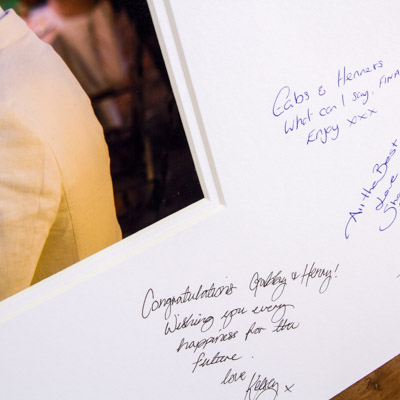 Gabs & Henners
What can I say. FINA
Enjoy xxx
All the Best
Love
Congratulations Gabby & Henry!
Wishing you every
happiness for the
future.
love Kelsey x